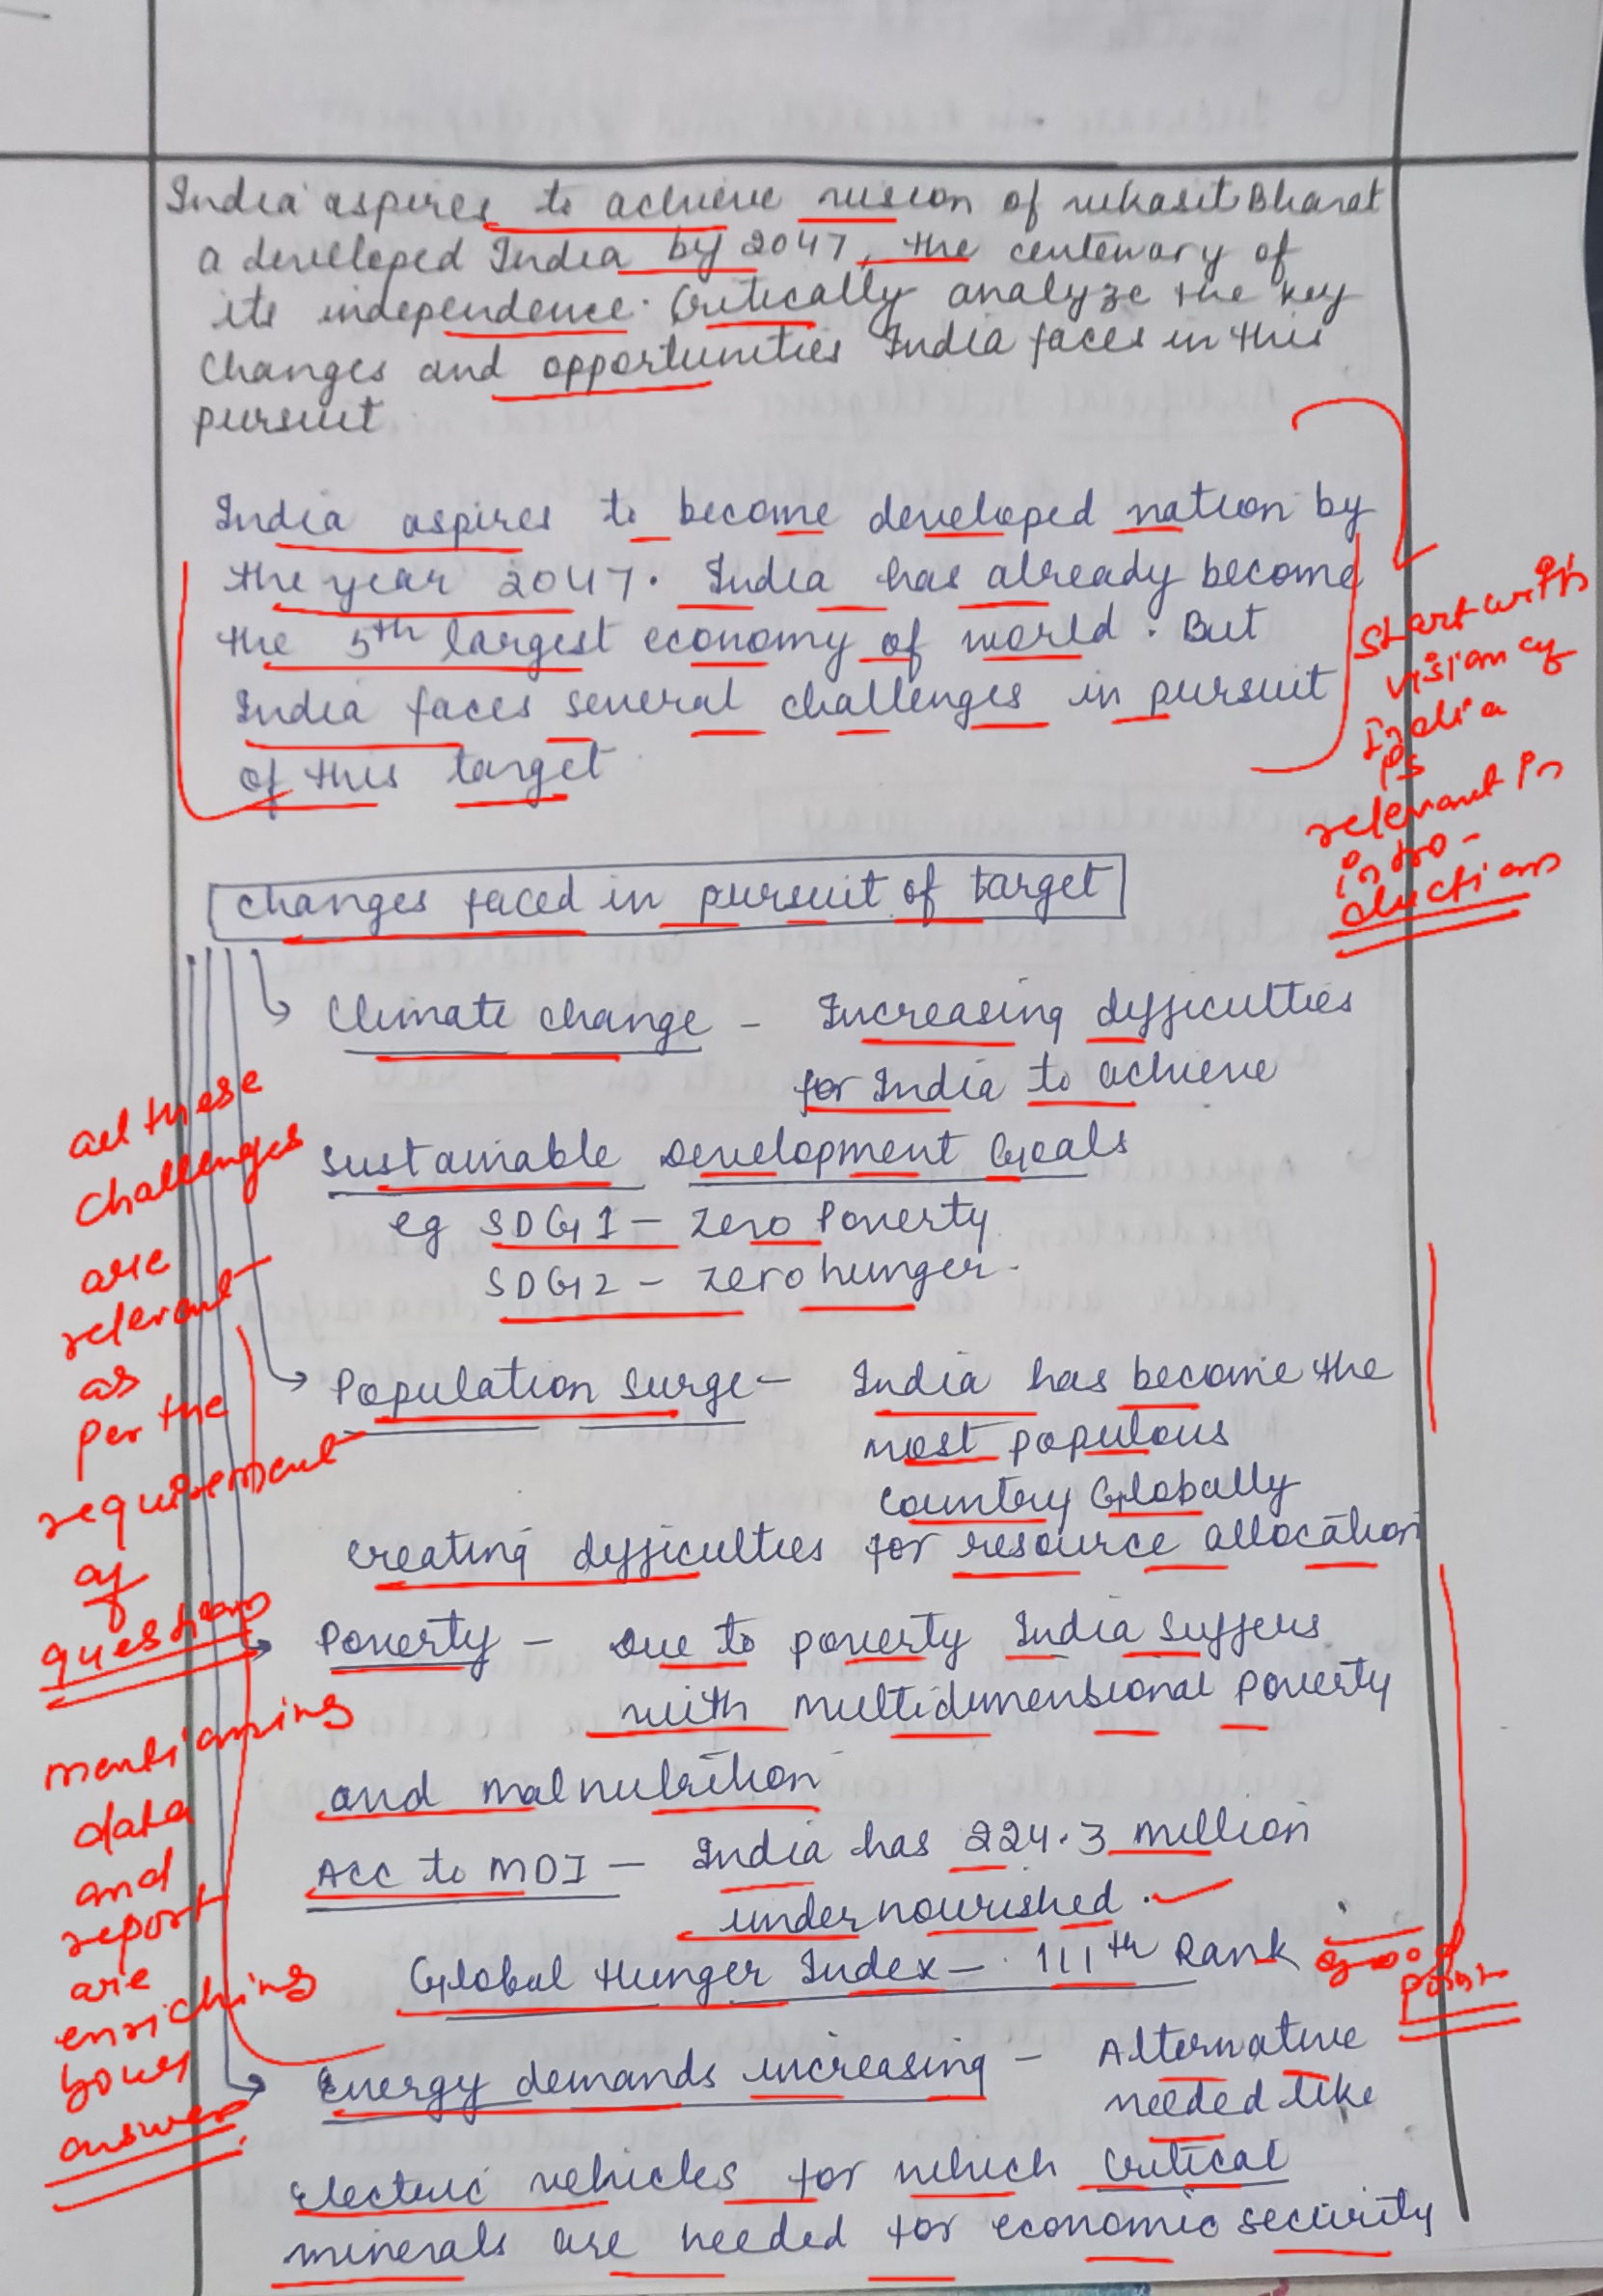 India aspires to achieve vision of vikasit Bharat
a developed India by 2047, the centenary of
its independence. Critically analyze the key
Changes and opportunities India faces in this
pursuit
India aspires to become developed nation by
the year 2047. India has already become
the 5th largest economy of world. But
India faces several challenges in pursuit
of this target
Start with
vision of
India
is
relevant in
intro-
ductions
Changes faced in pursuit of target
Climate change - Increasing difficulties
for India to achieve
Sustainable Development Goals
eg SDG1 - Zero Poverty
SDG2 - Zero hunger.
all these
challenges
are
relevant
as
per the
requirement
of
questions
Population Surge - India has become the
most populous
country Globally
creating difficulties for resource allocation
Poverty - Due to poverty India suffers
with multidimensional poverty
and malnutrition
Acc to MDI - India has 224.3 million
undernourished.
Global Hunger Index - 111th Rank
good
point
mentioning
data
and
report
are
enriching
your
answer.
Energy demands increasing - Alternative
needed like
Electric vehicles for which Critical
minerals are needed for economic security